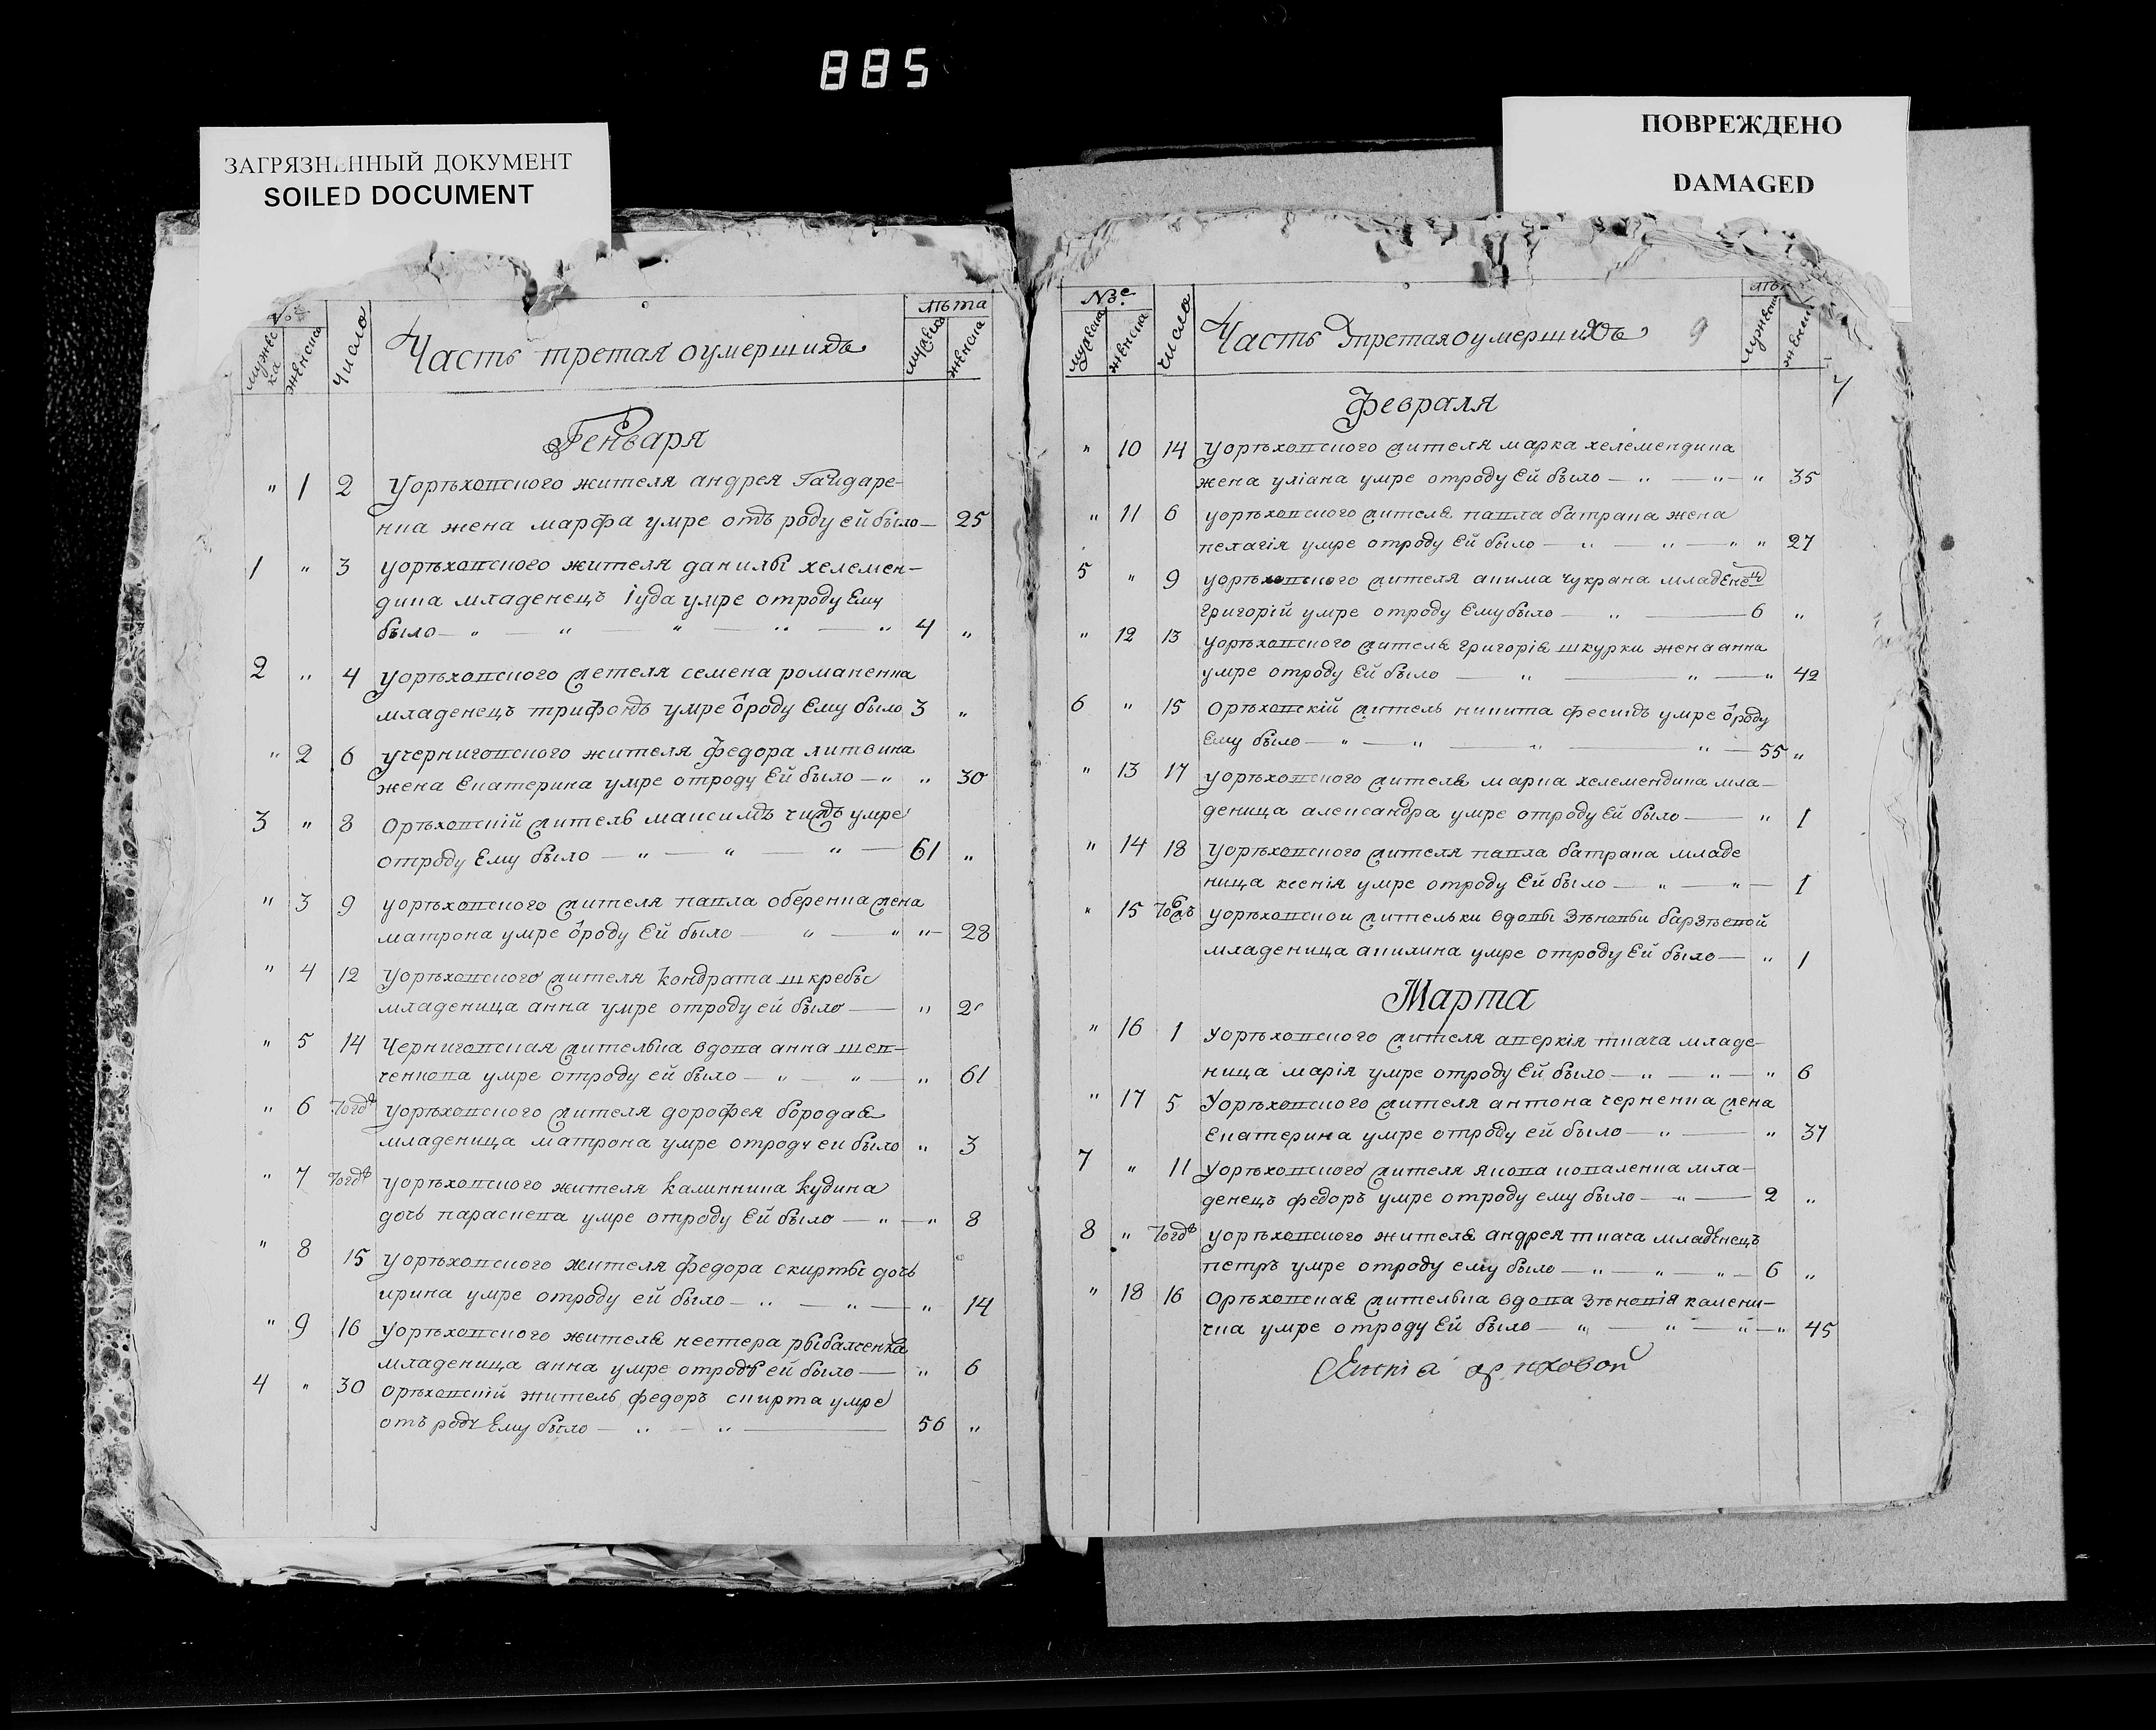 885
ЗАГРЯЗНЕННЫЙ ДОКУМЕНТ
SOILED DOCUMENT
ПОВРЕЖДЕНО
DAMAGED
мужеска женска число Часть третая оумершихъ лѣта мужеска женска
Генваря
" 1 2 Уорѣховского жителя андрея Гайдаре-
нка жена марфа умре отъ роду ей было — 25
1 " 3 уорѣховского жителя данилы хелемен-
дика младенец͛ъ іуда умре отроду Ему
было — " — " — " — " — " 4 "
2 " 4 уорѣховского жетеля семена романенка
младенецъ трифонъ умре ѿроду Ему было 3 "
" 2 6 учернигов­ского жителя федора литвина
жена Екатерина умре отроду Ей было — " " 30
3 " 8 Орѣховскій житель максимъ чижъ умре
отроду Ему было — " — " — " — 61 "
" 3 9 уорѣховского жителя павла оберенка жена
матрона умре ѿроду Ей было — " — " " 28
" 4 12 уорѣховского жителя кондрата шкребы
младеница анна умре отроду ей было — " 2
" 5 14 Черниговская жителька вдова анна шев-
ченкова умре отроду ей было — " — " — " 61
" 6 тогдѣ уорѣховского жителя дорофея бородая
младеница матрона умре отроду ей было " 3
" 7 тогдѣ уорѣховского жителя калинника кудина
дочь параскева умре отроду Ей было — " — " 8
" 8 15 уорѣховского жителя федора скирты дочь
ирина умре отроду ей было — " — " — " 14
" 9 16 уорѣховского жителя нестера рыбалченка
младеница анна умре отродѣ ей было — " 6
4 " 30 орѣховскій житель федоръ скирта умре
отъ роду Ему было — " — " — 56 "
№е мужеска женска число Часть третая оумершихъ 9 лѣт мужеск женск
7
Февраля
" 10 14 уорѣховского жителя марка хелемендика
жена уліана умре отроду Ей было — " — " — " 35
" 11 6 уорѣховского жителя павла батрака жена
пелагія умре отроду Ей было — " — " — " " 27
5 " 9 уорѣховского жителя акима чукрана младенец
григорій умре отроду Ему было — " — 6 "
" 12 13 уорѣховского жителя григорія шкурки жена анна
умре отроду Ей было — " — " — " 42
6 " 15 Орѣховскій житель никита фесикъ умре ѿроду
Ему было — " — " — " " — 55 "
" 13 17 уорѣховского жителя марка хелемендика мла-
деница александра умре отроду Ей было — " 1
" 14 18 уорѣховского жителя павла батрака младе
ница ксенія умре отроду Ей было — " — " — 1
" 15 уорѣховской жительки вдовы зѣновьи
младеница акилина умре отроду Ей было — " 1
Марта
" 16 1 уорѣховского жителя аверкія ткача младе-
ница марія умре отроду Ей было — " — " — " 6
" 17 5 уорѣховского жителя антона черненка жена
Екатерина умре отроду ей было — " — " 37
7 " 11 уорѣховского жителя якова коваленка мла-
денецъ федоръ умре отроду ему было — " — 2 "
8 " тогдѣ уорѣховского жителя андрея ткача младЕнецъ
петръ умре отроду ему было — " — " — " — 6 "
" 18 16 Орѣховская жителька вдова зѣновія камени-
чка умре отроду Ей было — " — " — " — " 45